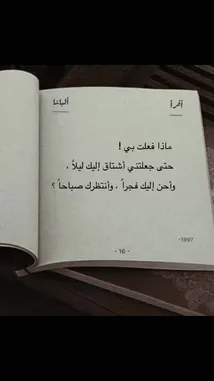 أقرأ
ألياذا
ماذا فعلت بي !
حتى جعلتني أشتاق إليك ليلاً ،
وأحن إليك فجراً ، وأنتظرك صباحاً ؟
-1997
- 16 -